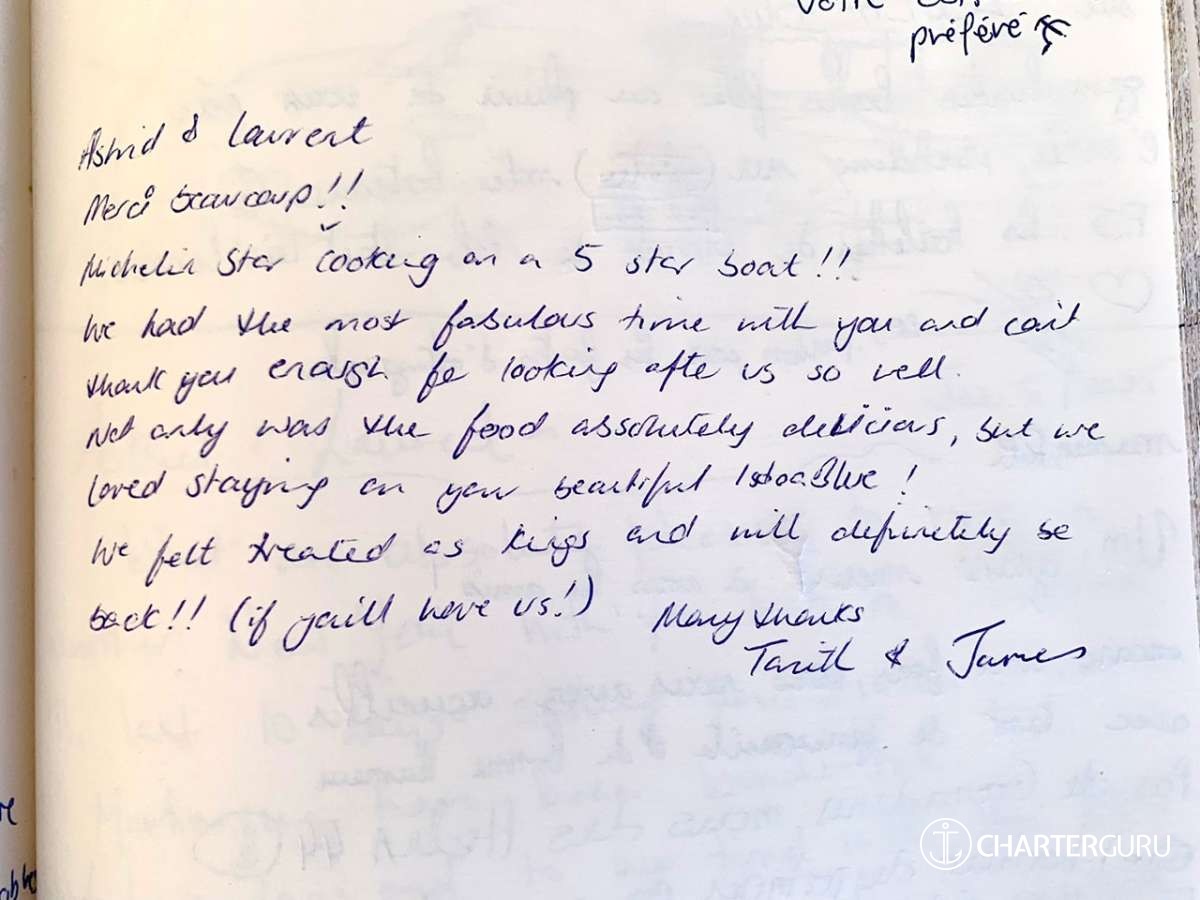 préféré
Astrid & Laurent
Merci beaucoup!!
Michelin Star cooking on a 5 star boat!!
We had the most fabulous time with you and can't
thank you enough for looking after us so well.
Not only was the food absolutely delicious, but we
loved staying on your beautiful !
We felt treated as kings and will definitely be
back!! (if you'll have us!)
Many thanks
Tanith & James
CHARTERGURU